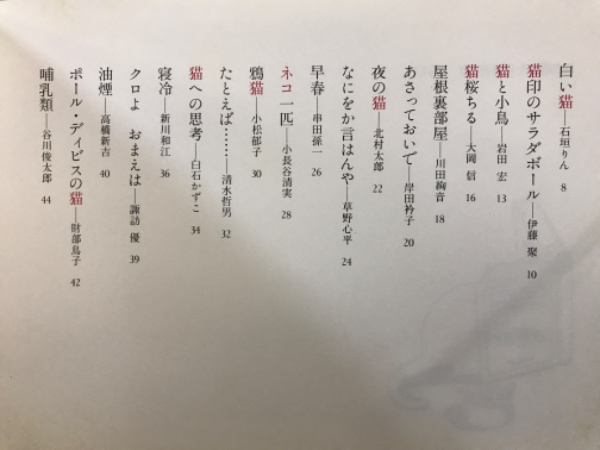 白い猫──石垣りん 8
猫印のサラダボール──伊藤 聚 10
猫と小鳥──岩田 宏 13
猫桜ちる──大岡 信 16
屋根裏部屋──川田絢音 18
あさっておいで──岸田衿子 20
夜の猫──北村太郎 22
なにをか言はんや──草野心平 24
早春──串田孫一 26
ネコ一匹──小長谷清実 28
鴉猫──小松郁子 30
たとえば……──清水哲男 32
猫への思考──白石かずこ 34
寝冷──新川和江 36
クロよ おまえは──諏訪 優 39
油煙──高橋新吉 40
ポール・デイビスの猫──財部鳥子 42
哺乳類──谷川俊太郎 44